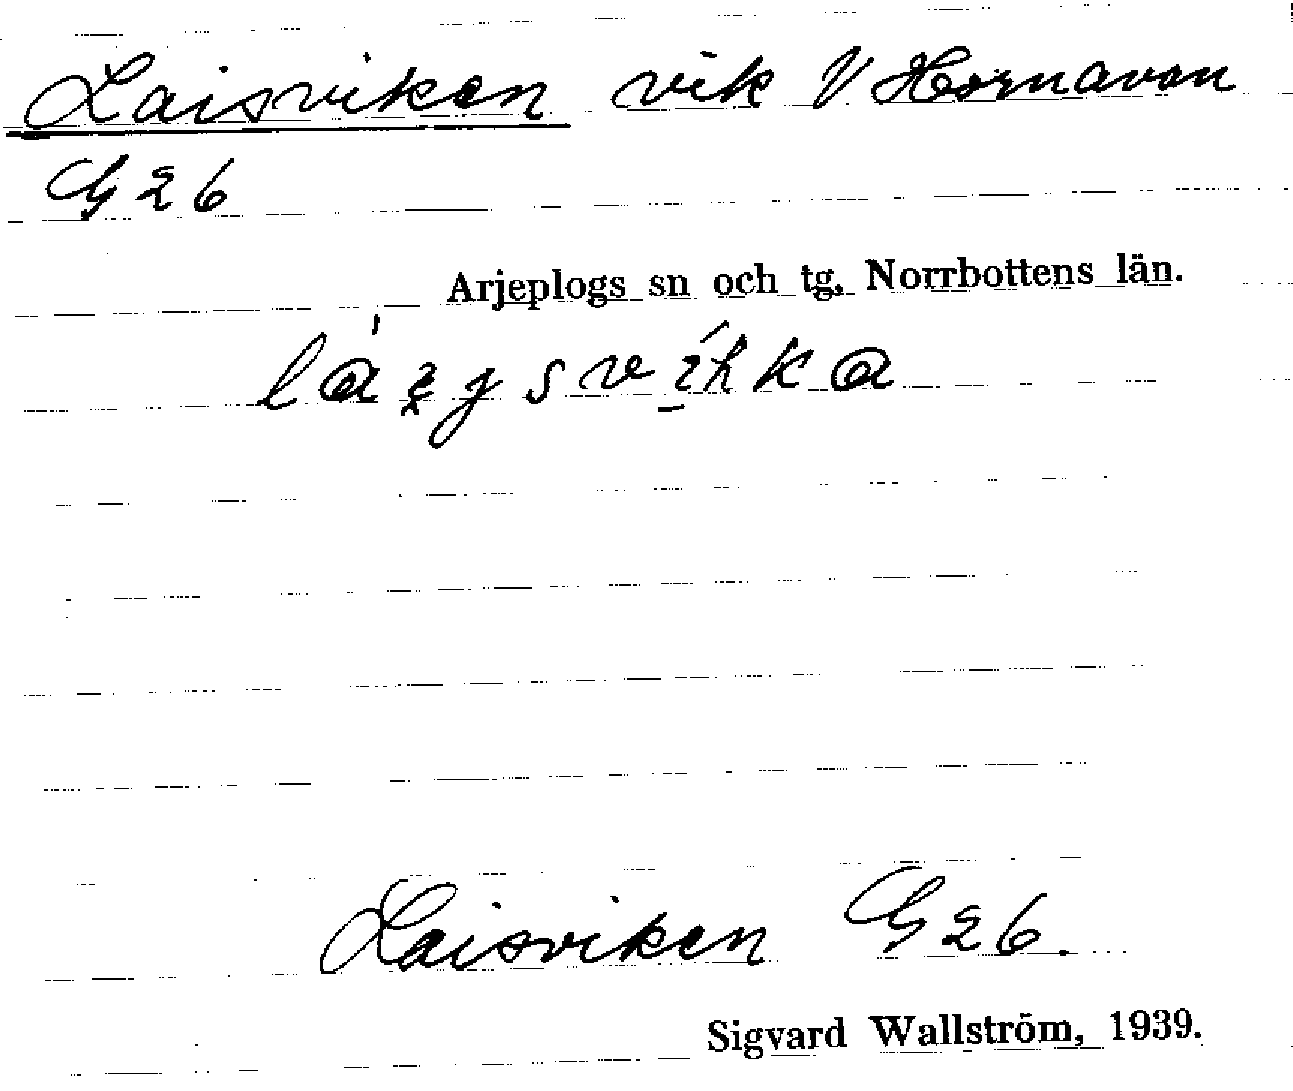 Laisviken vik V Hornavan
G 26
Arjeplogs sn och tg. Norrbottens län.
Laisviken G 26.
Sigvard Wallström, 1939.